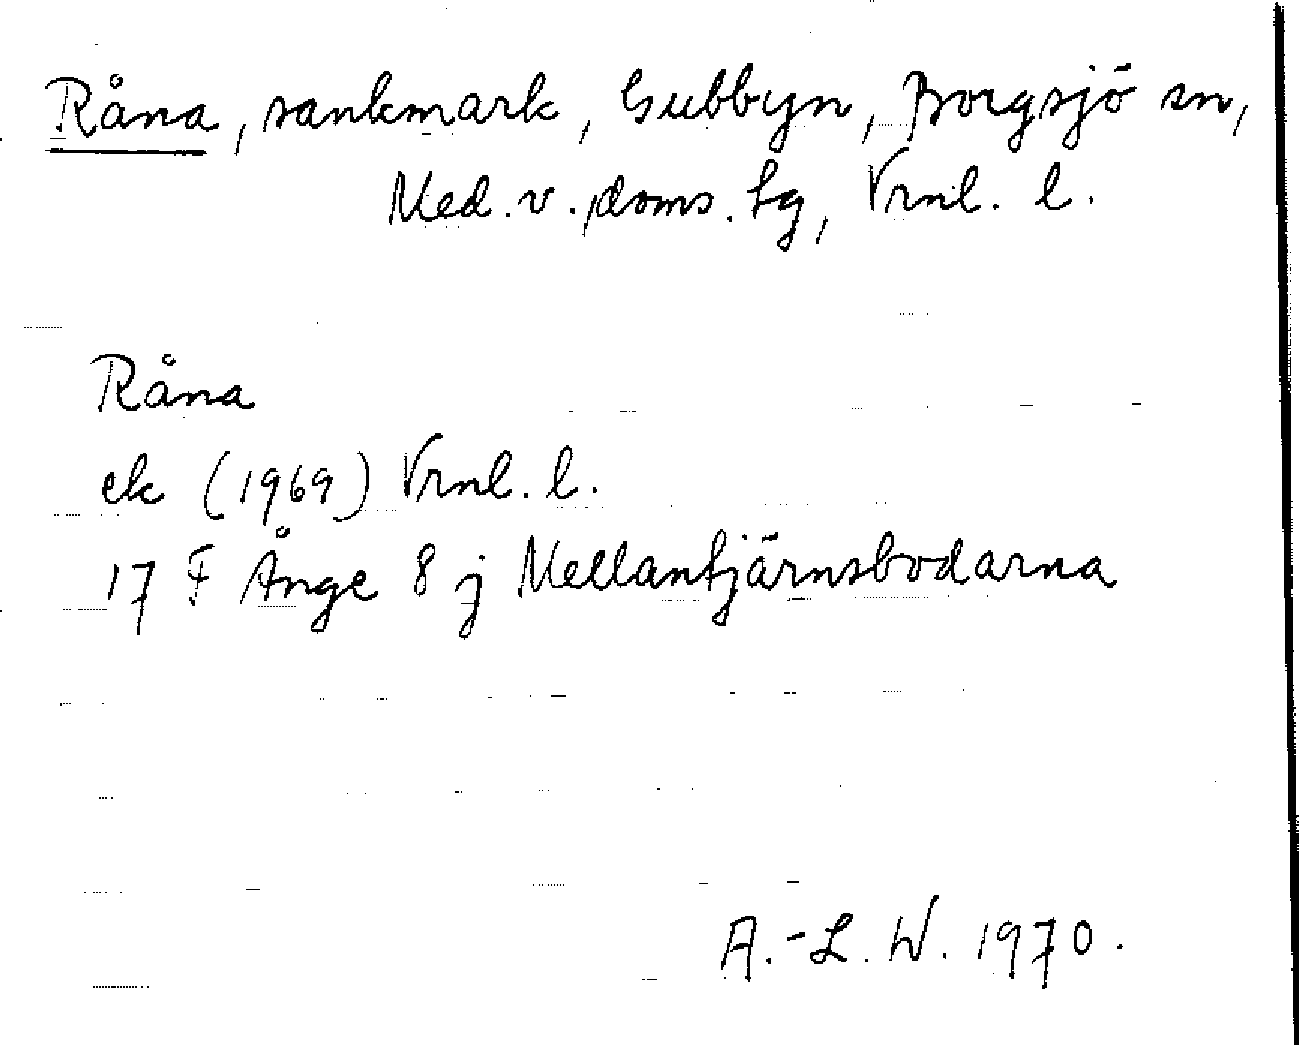 Råna, sankmark, Gubbyn, Borgsjö sn,
Med. v. doms. tg, Vrnl. l.
Råna
ek (1969) Vrnl. l.
17 F Ånge 8 j Mellantjärnsbodarna
A.-L. W. 1970.